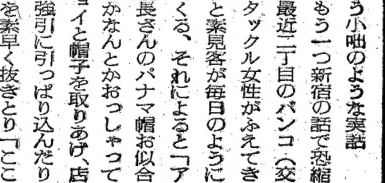 う小咄のような実話
もう一つ新宿の話で恐縮
最近二丁目のバンコ（交
タックル女性がふえてき
と素見客が毎日のように
くる、それによると「ア
長さんのパナマ帽お似合
かなんとかおつしやつて
ョイと帽子を取りあげ、店
強引に引っぱり込んだり
を素早く抜きとり「ここ